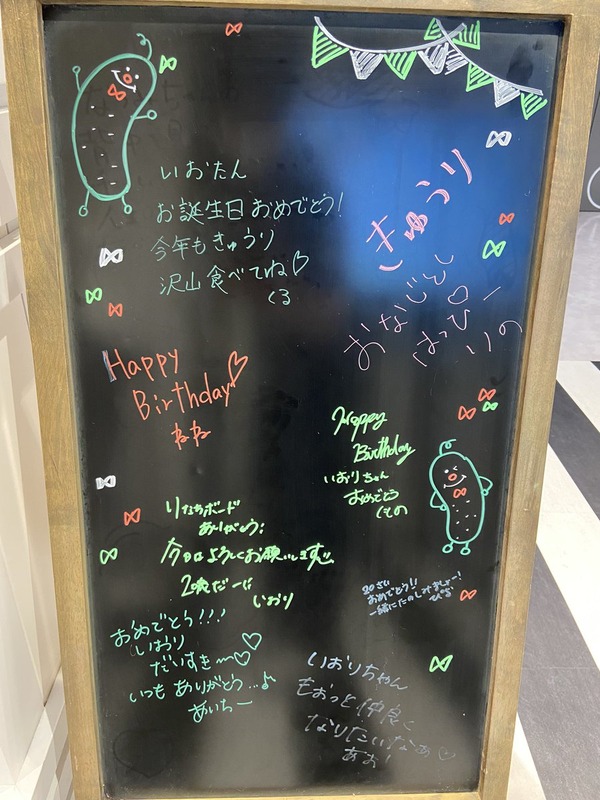 いおたん
お誕生日おめでとう!
今年もきゅうり
沢山食べてね♡
くる
きゅうり
おなじどし
はっぴー
りの
Happy
Birthday♡
ねね
Happy
Birthday
いおりちゃん
おめでとう
くもの
りなちボード
ありがとう!
今日はよろしくお願いします
いおり
20さい
おめでとう!!
一緒にたのしみましょー!
おめでとう!!!
いおり
だいすき〜♡♡
いつもありがとう…♪
あいちー
いおりちゃん
もおっと仲良く
なりたいなあ♡
あお!